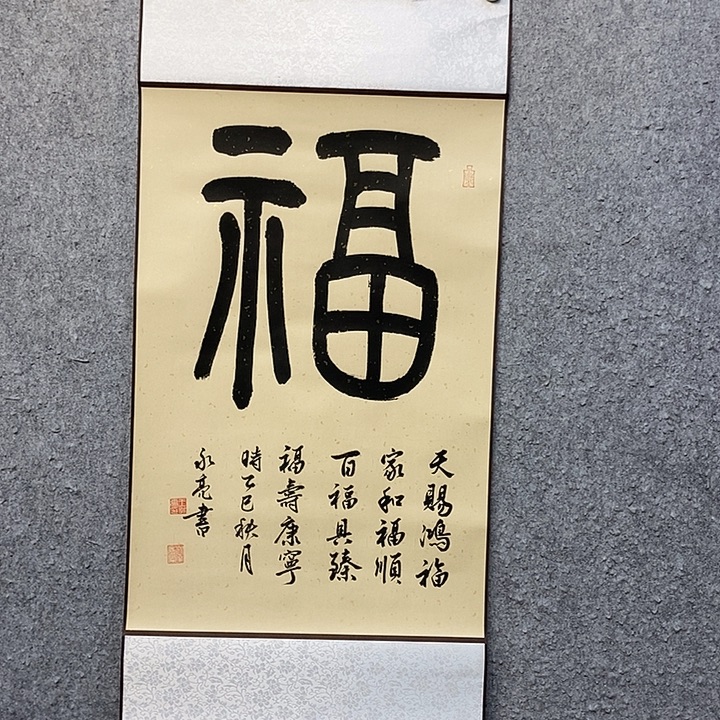 福
天賜鴻福
家和福順
百福具臻
福壽康寧
時乙巳秋月
永亮書